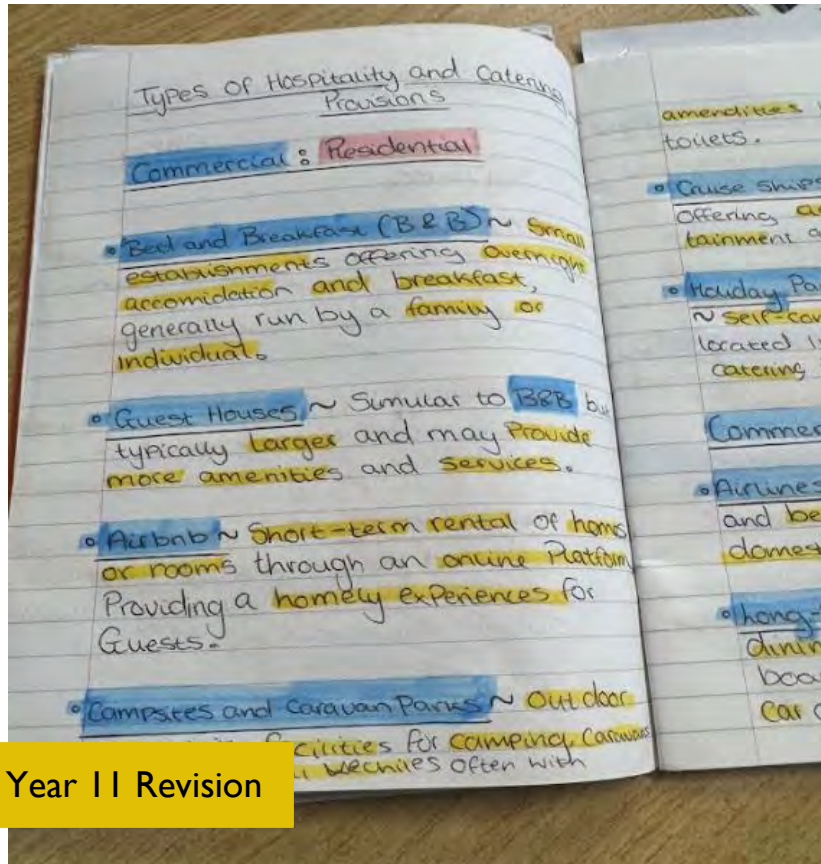 Types of Hospitality and Catering
Provisions
Commercial : Residential
• Bed and Breakfast (B&B) ~ Small
establishments offering overnight
accomidation and breakfast,
generally run by a family or
individual.
• Guest Houses ~ Sumular to B&B but
typically larger and may Provide
more amenities and services.
• Airbnb ~ Short-term rental of homs
or rooms through an online Platform
Providing a homely experiences for
Guests.
• Campsites and Caravan Parks ~ Outdoor
cilities for camping, Caravans
often with
amendities
toilets.
• Cruise Ships
offering
tainment
• Houday
~ Self-con
located
catering
Commer
• Airlines
and be
domest
• Long-
dinin
boa
Car
Year 11 Revision